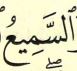 السَّمِيعُ ۖ